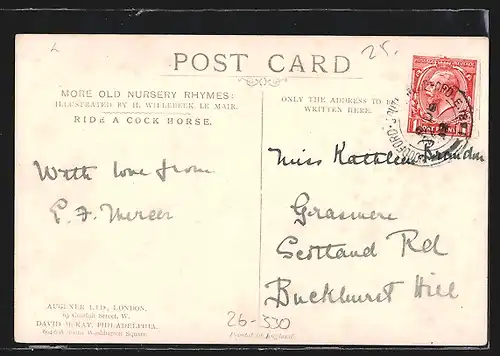 25.
POST CARD
MORE OLD NURSERY RHYMES:
ILLUSTRATED BY H. WILLEBEEK LE MAIR.
RIDE A COCK HORSE.
ONLY THE ADDRESS TO BE
WRITTEN HERE.
With love from
Miss Kathleen
Grasmere
Scotland Rd
Buckhurst Hill
AUGENER LTD., LONDON.
63 Conduit Street, W.
DAVID McKAY, PHILADELPHIA.
604-8 South Washington Square
26-330
Printed in England.